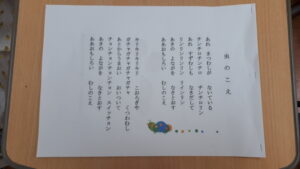 虫のこえ
あれ まつむしが ないている
チンチロチンチロ チンチロリン
あれ すずむしも なきだして
リンリンリンリン リインリン
あきの よながを なきとおす
ああおもしろい むしのこえ
キリキリキリキリ こおろぎや
ガチャガチャガチャガチャ くつわむし
あとからうまおい おいついて
チョンチョンチョンチョン スイッチョン
あきの よながを なきとおす
ああおもしろい むしのこえ